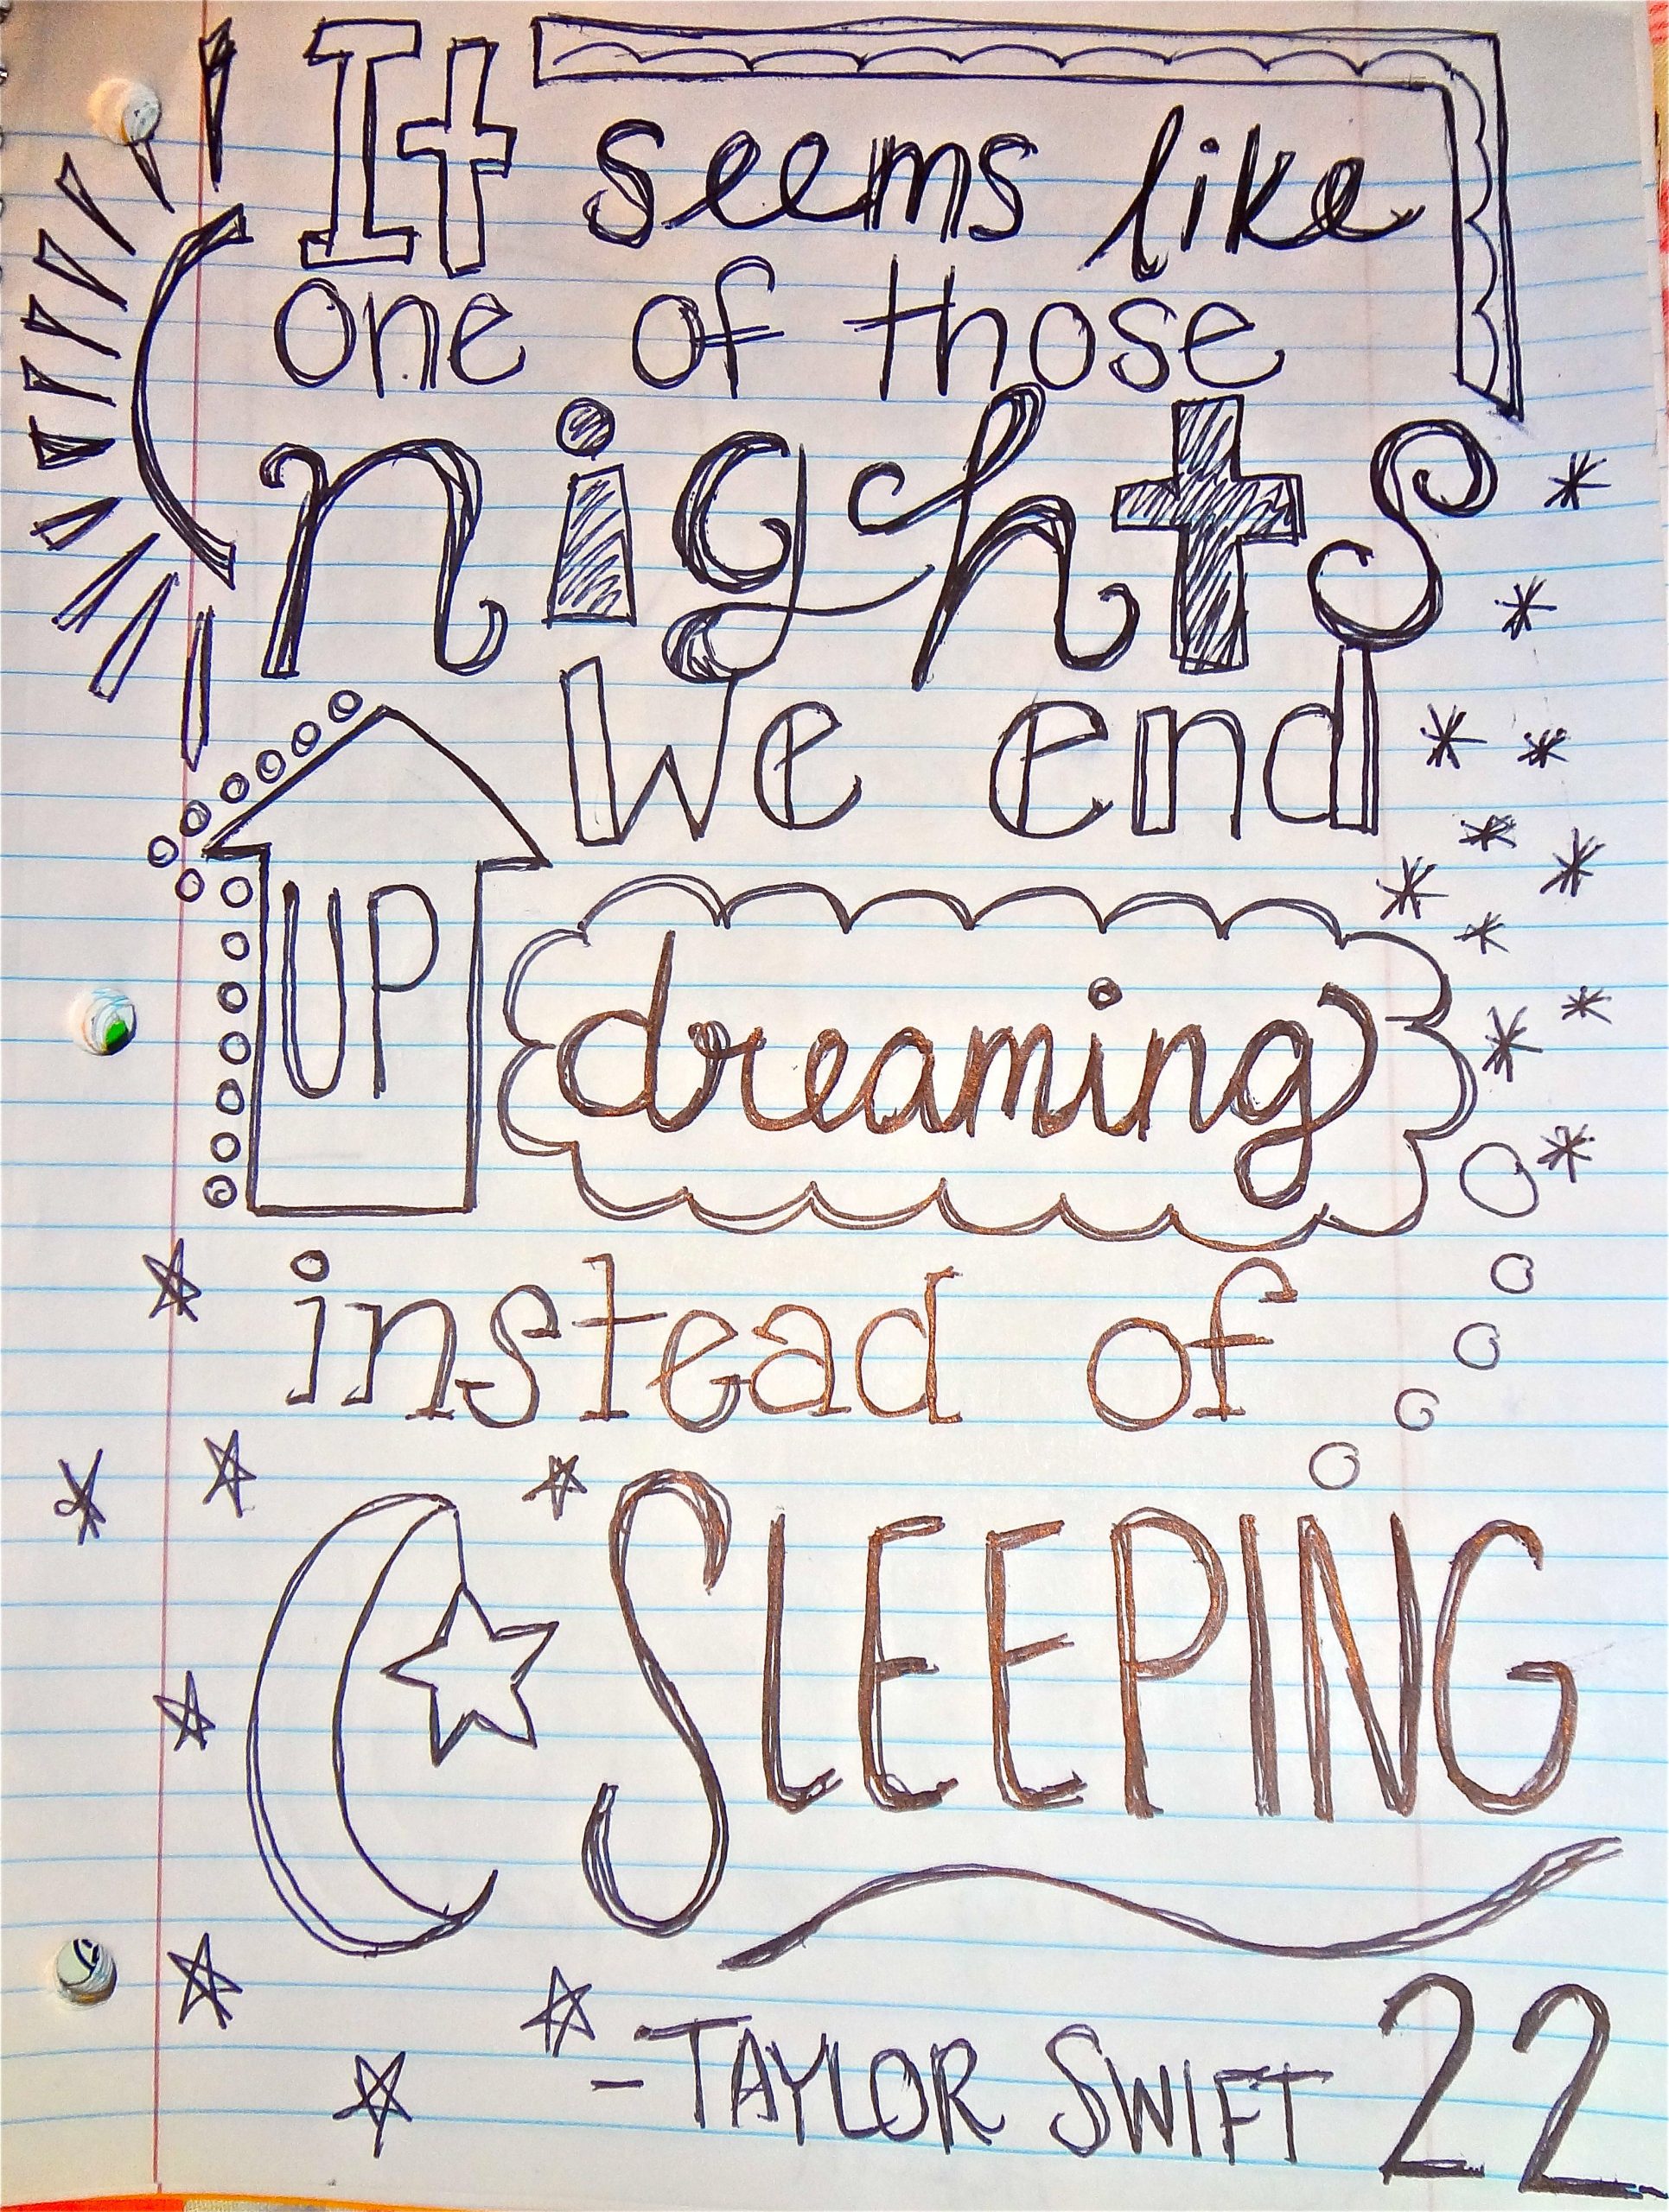 It seems like
one of those
nights
we end
UP dreaming
instead of
SLEEPING
-TAYLOR SWIFT 22